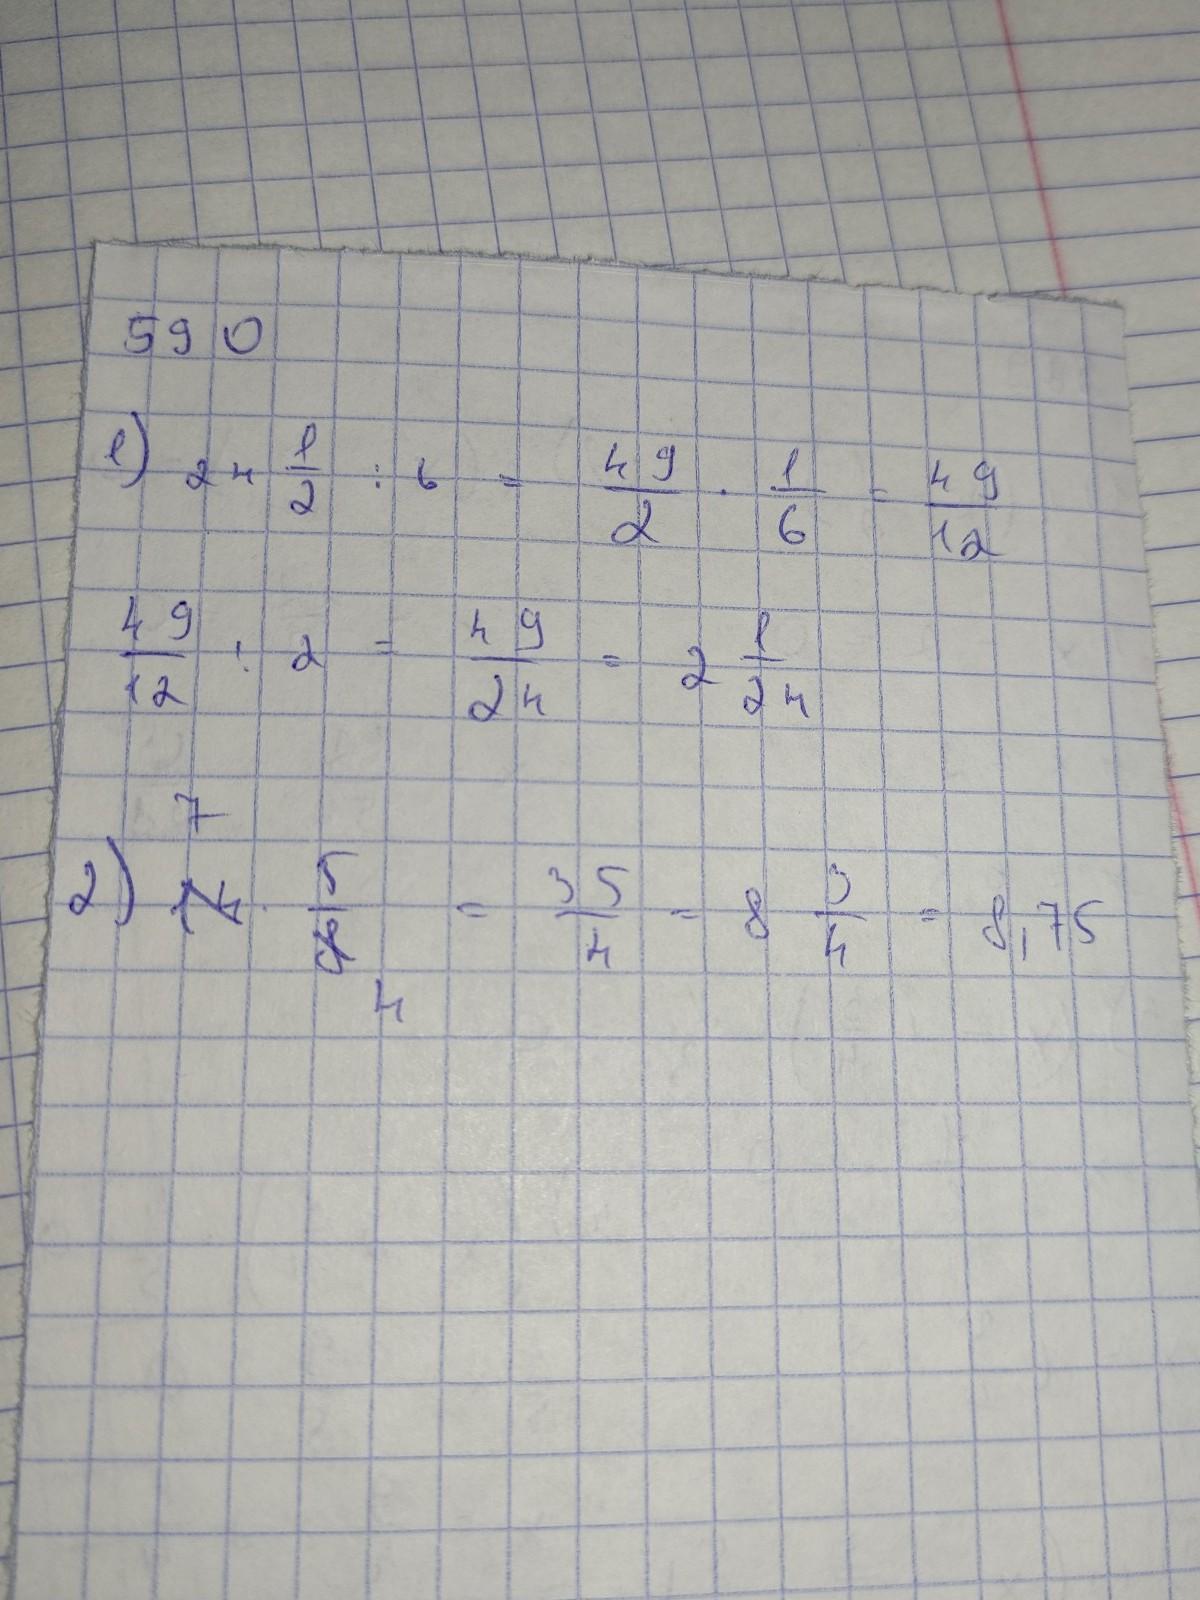 590
1) 24 1/2 : 6 = 49/2 · 1/6 = 49/12
49/12 : 2 = 49/24 = 2 1/24
7
2) 14 · 5/8 = 35/4 = 8 3/4 = 8,75
4